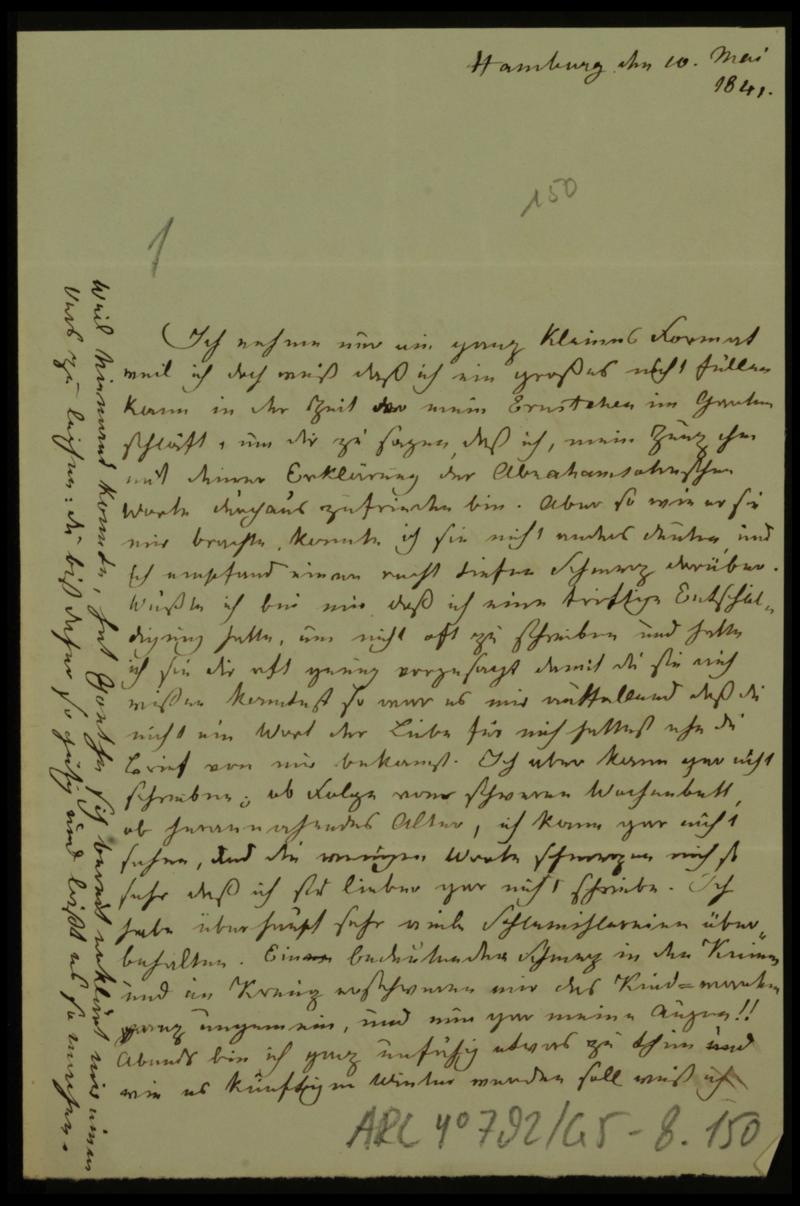 Hamburg den 10. Mai
1841.
150
1
Ich nehme nur ein ganz kleines Format
weil ich doch weiß daß ich ein großes nicht füllen
kann in der Zeit da mein Ernstchen im Garten
schläft, um dir zu sagen, daß ich, mein Zunzchen
mit deiner Erklärung der Abrahamsohnschen
Worte durchaus zufrieden bin. Aber so wie er sie
mir brachte, konnte ich sie nicht anders deuten, und
ich empfand einen recht tiefen Schmerz darüber.
Wußte ich bei mir, daß ich eine triftige Entschul„
digung hatte, um nicht oft zu schreiben und hatte
ich sie dir oft genug vorgesagt damit du sie auch
wißen konntest so war es mir auffallend daß du
nicht ein Wort der Liebe für mich hattest ehe du
Brief von mir bekamst. Ich aber kann gar nicht
schreiben; ob Folge vom schweren Wochenbett,
ob herannahendes Alter, ich kann gar nicht
sehen, und die wenigen Worte schmerzen mich so
sehr daß ich sie lieber gar nicht schriebe. Ich
habe überhaupt sehr viele Schlemihlereien über„
behalten. Einen bedeutenden Schmerz in den Knien
und im Kreuz erschweren mir das Kind=warten
ganz ungemein, und nun gar meine Augen!!
Abends bin ich ganz unfähig etwas zu thun und
wie es künftigen Winter werden soll weiß ich
Weil niemand konnte, hat Goethe sich bereit erklärt mir einen
Vers zu leihen: du bist daher so gütig und läßt es so machen.
ARC 4° 792/G5-8.150